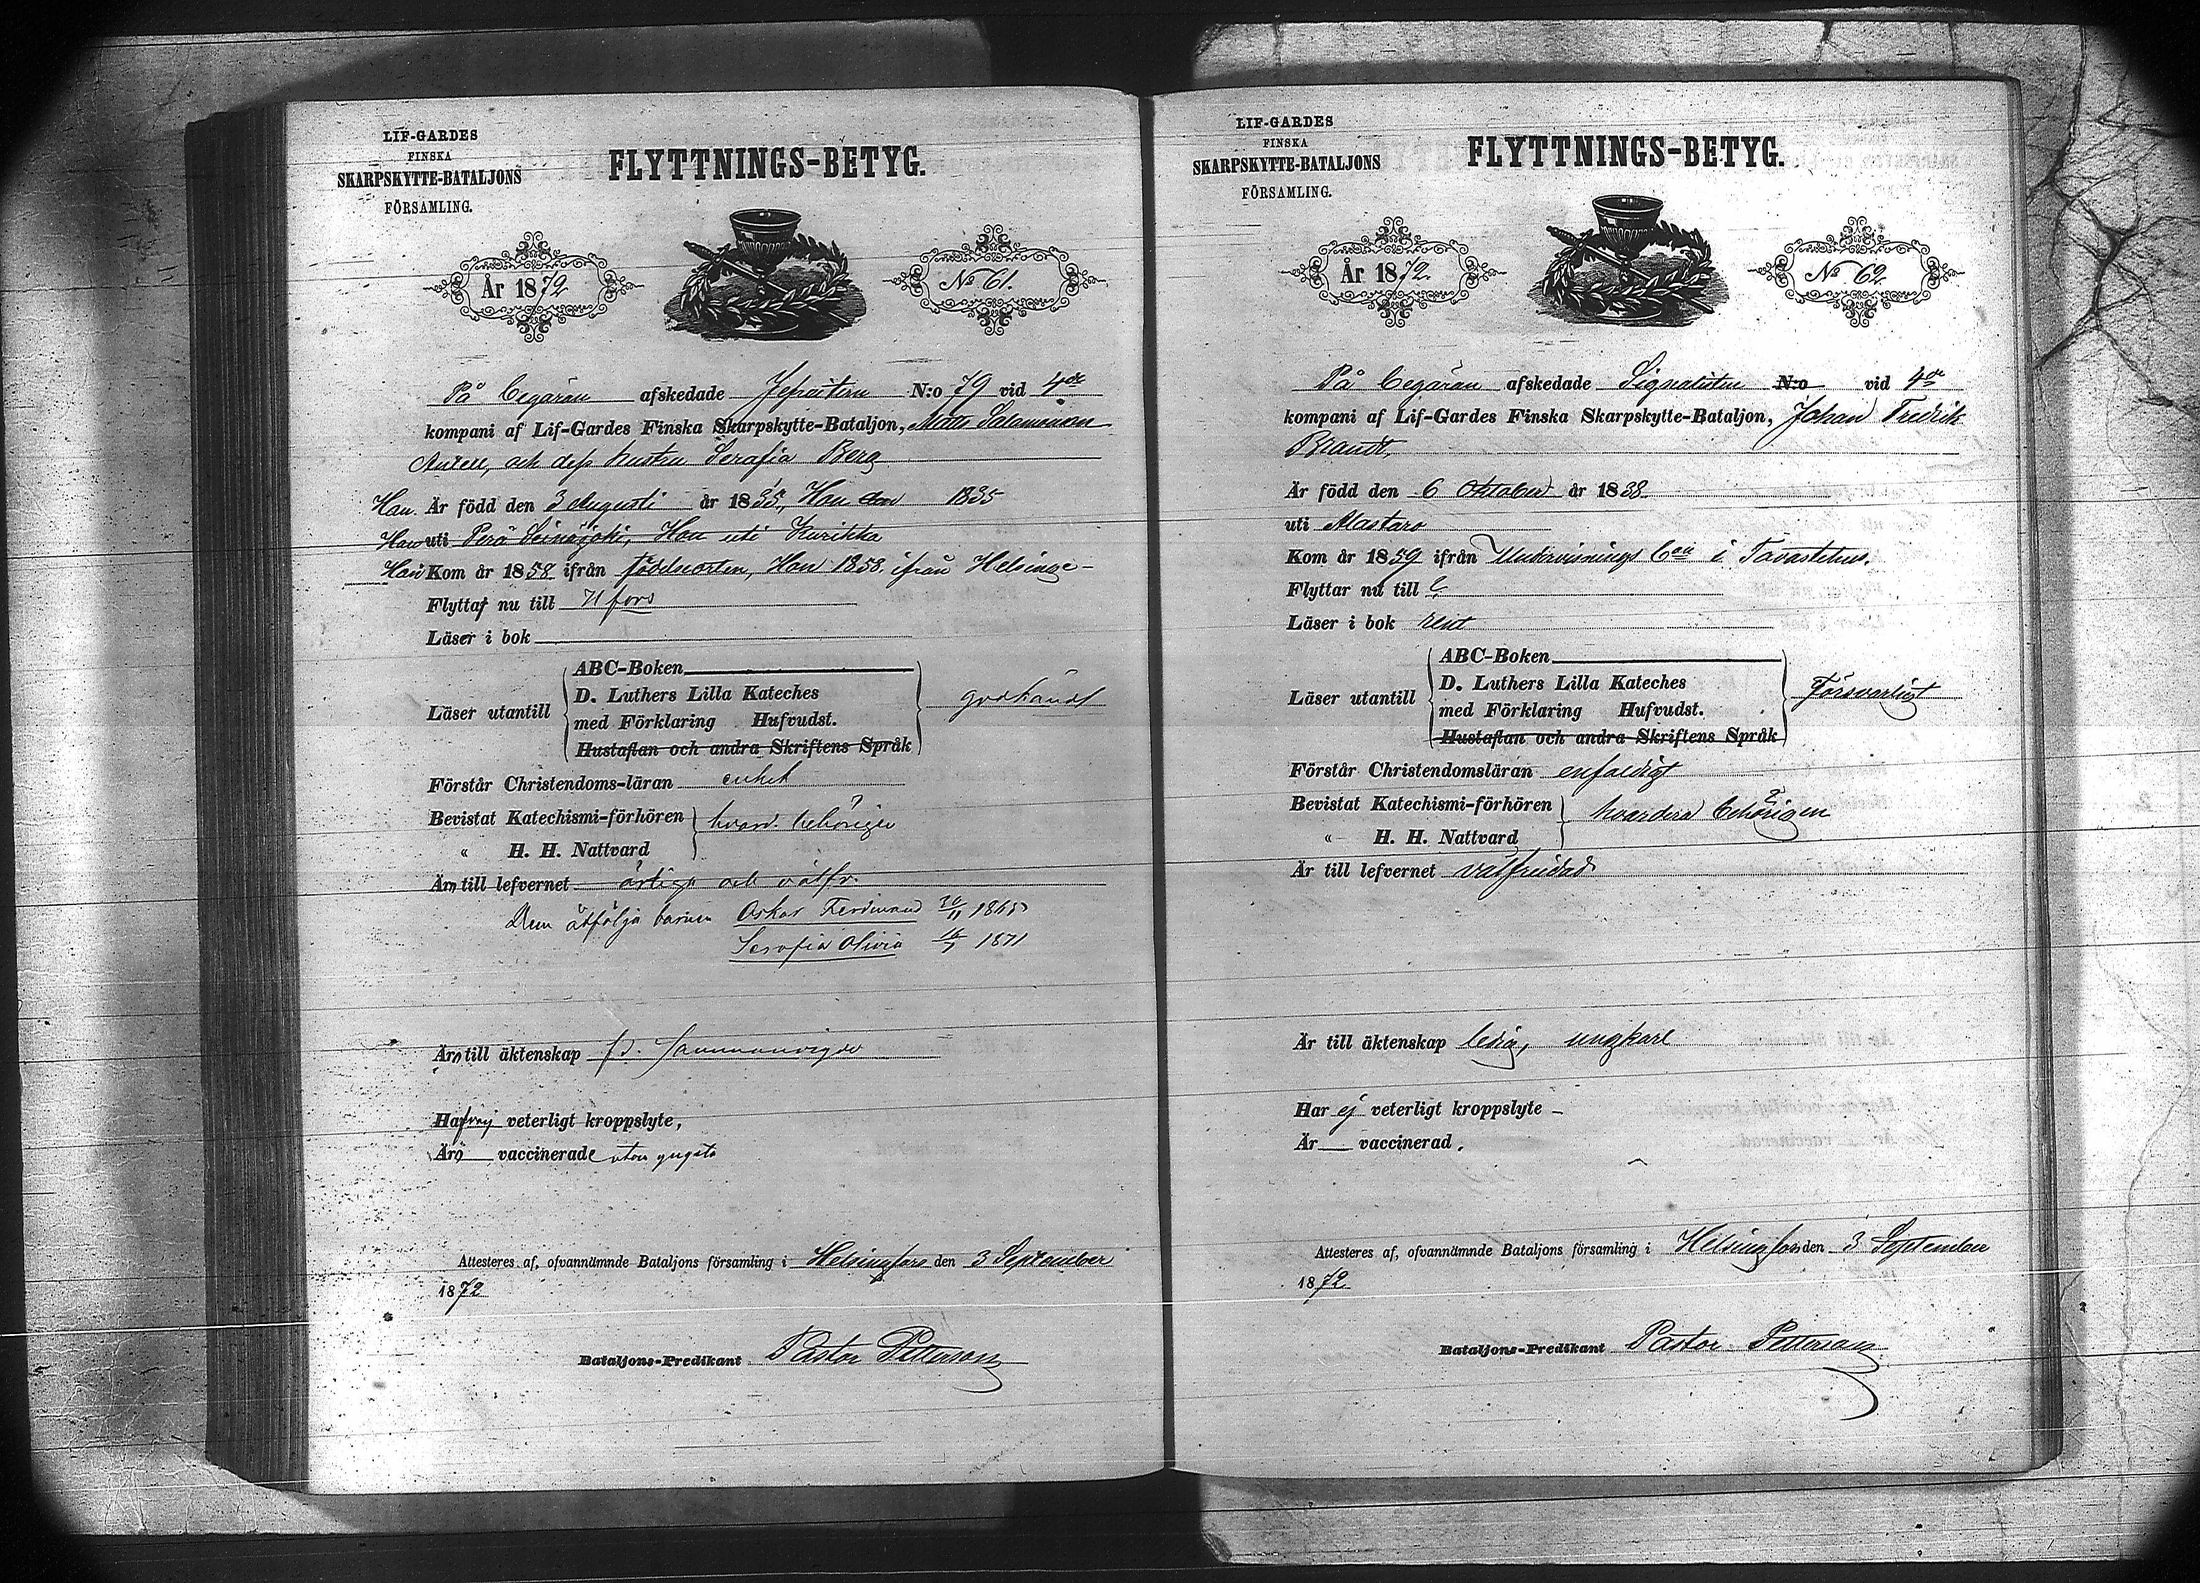 LIF-GARDES
FINSKA
SKARPSKYTTE-BATALJONS
FÖRSAMLING.
FLYTTNINGS-BETYG.
År 1872
No 61.
På begäran afskedade Jefreitern N:o 79 vid 4de
kompani af Lif-Gardes Finska Skarpskytte-Bataljon, Matts Salomonson
och dess hustru Serafia Berg
Han Är född den 3 Augusti år 1835, Hon 1835
Han uti Perä Seinäjoki, Hon uti Kurikka
Han Kom år 1858 ifrån födelseorten, Hon 1858 ifrån Helsinge-
Flytta nu till fors
Läser i bok
Läser utantill
ABC-Boken
D. Luthers Lilla Kateches
med Förklaring Hufvudst.
Hustaflan och andra Skriftens Språk
godkändt
Förstår Christendoms-läran enkelt
Bevistat Katechismi-förhören
" H. H. Nattvard
hvard. behörigen
Äro till lefvernet ärliga och välfr.
Dem åtfölja barnen Oskar Ferdinand 20/11 1865
Serafia Olivia 16/7 1871
Äro till äktenskap Sammanvigde
Hafva ej veterligt kroppslyte,
Äro vaccinerade utom yngsta
Attesteres af, ofvannämnde Bataljons församling i Helsingfors den 3 September
1872
Bataljons-Predikant Pastor Petterson
LIF-GARDES
FINSKA
SKARPSKYTTE-BATALJONS
FÖRSAMLING.
FLYTTNINGS-BETYG.
År 1872.
No 62.
På begäran afskedade Signalisten N:o vid 4de
kompani af Lif-Gardes Finska Skarpskytte-Bataljon, Johan Fredrik
Brandt,
Är född den 6 Oktober år 1838
uti Alastaro
Kom år 1859 ifrån Undervisnings i Tavastehus.
Flyttar nu till
Läser i bok rent
Läser utantill
ABC-Boken
D. Luthers Lilla Kateches
med Förklaring Hufvudst.
Hustaflan och andra Skriftens Språk
Försvarligt
Förstår Christendomsläran enfaldigt
Bevistat Katechismi-förhören
" H. H. Nattvard
hvardera behörigen
Är till lefvernet välfrejdad
Är till äktenskap ledig, ungkarl
Har ej veterligt kroppslyte –
Är vaccinerad.
Attesteres af, ofvannämnde Bataljons församling i Helsingfors den 3 September
1872
Bataljons-Predikant Pastor Petterson